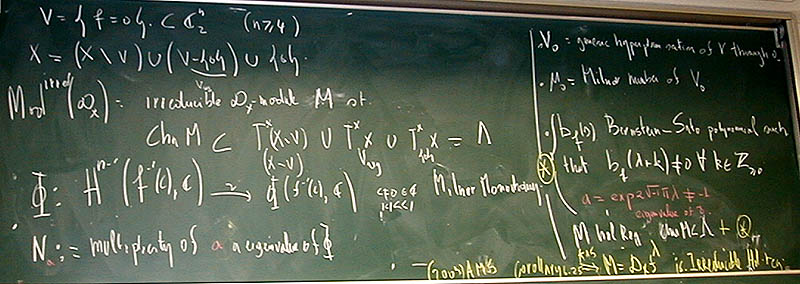 V = { f = 0 }. ⊂ ℂⁿ (n ≥ 4)
X = (X \ V) ∪ (V - {0}) ∪ {0}.
V_reg
Mod^irred (𝒟_X) = irreducible 𝒟_X-module M st.
Cha M ⊂ T*_(X\V) X ∪ T*_V_reg X ∪ T*_{0} X = Λ
Φ : H^n-1 (f^-1(c), ℂ) → (f^-1(c), ℂ) Milner Monodromy
|c| << 1
N_a := multiplicity of a a eigenvalue of Φ
V_0 = generic hyperplan section of V through 0
• μ_0 = Milnor number of V_0
• b_f(s) Bernstein-Sato polynomial such
that b_f(λ+k) ≠ 0 ∀ k ∈ ℤ_≥0
a = exp 2√-1 π λ ≠ -1
eigenvalue of
M hol Reg Cha M ⊂ Λ +
(2005) AMS Corollary M = 𝒟_X f^λ is Irreducible